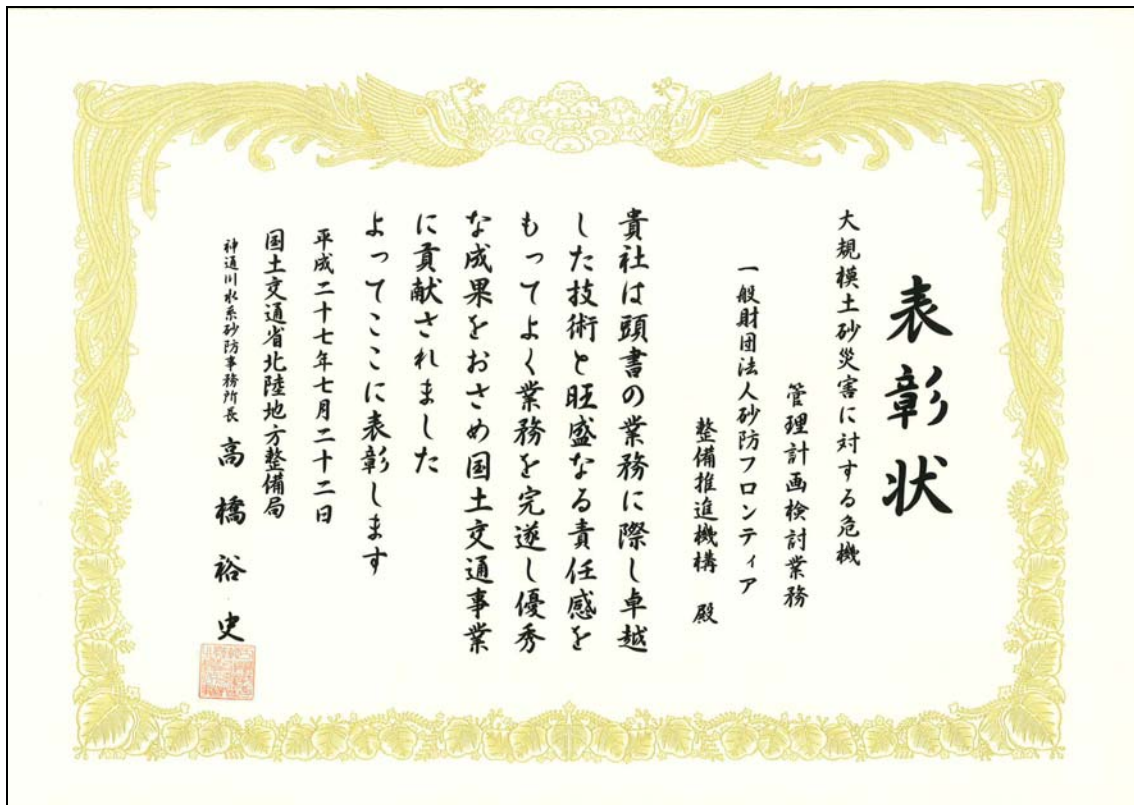 表彰状
大規模土砂災害に対する危機
管理計画検討業務
一般財団法人砂防フロンティア
整備推進機構 殿
貴社は頭書の業務に際し卓越
した技術と旺盛なる責任感を
もってよく業務を完遂し優秀
な成果をおさめ国土交通事業
に貢献されました
よってここに表彰します
平成二十七年七月二十二日
国土交通省北陸地方整備局
神通川水系砂防事務所長 高橋裕史